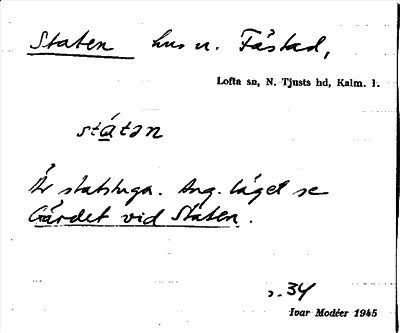 Staten hus u. Fåstad,
Lofta sn, N. Tjusts hd, Kalm. l.
státən
Är statstuga. Ang. läget se
Gärdet vid Staten.
s. 34
Ivar Modéer 1945